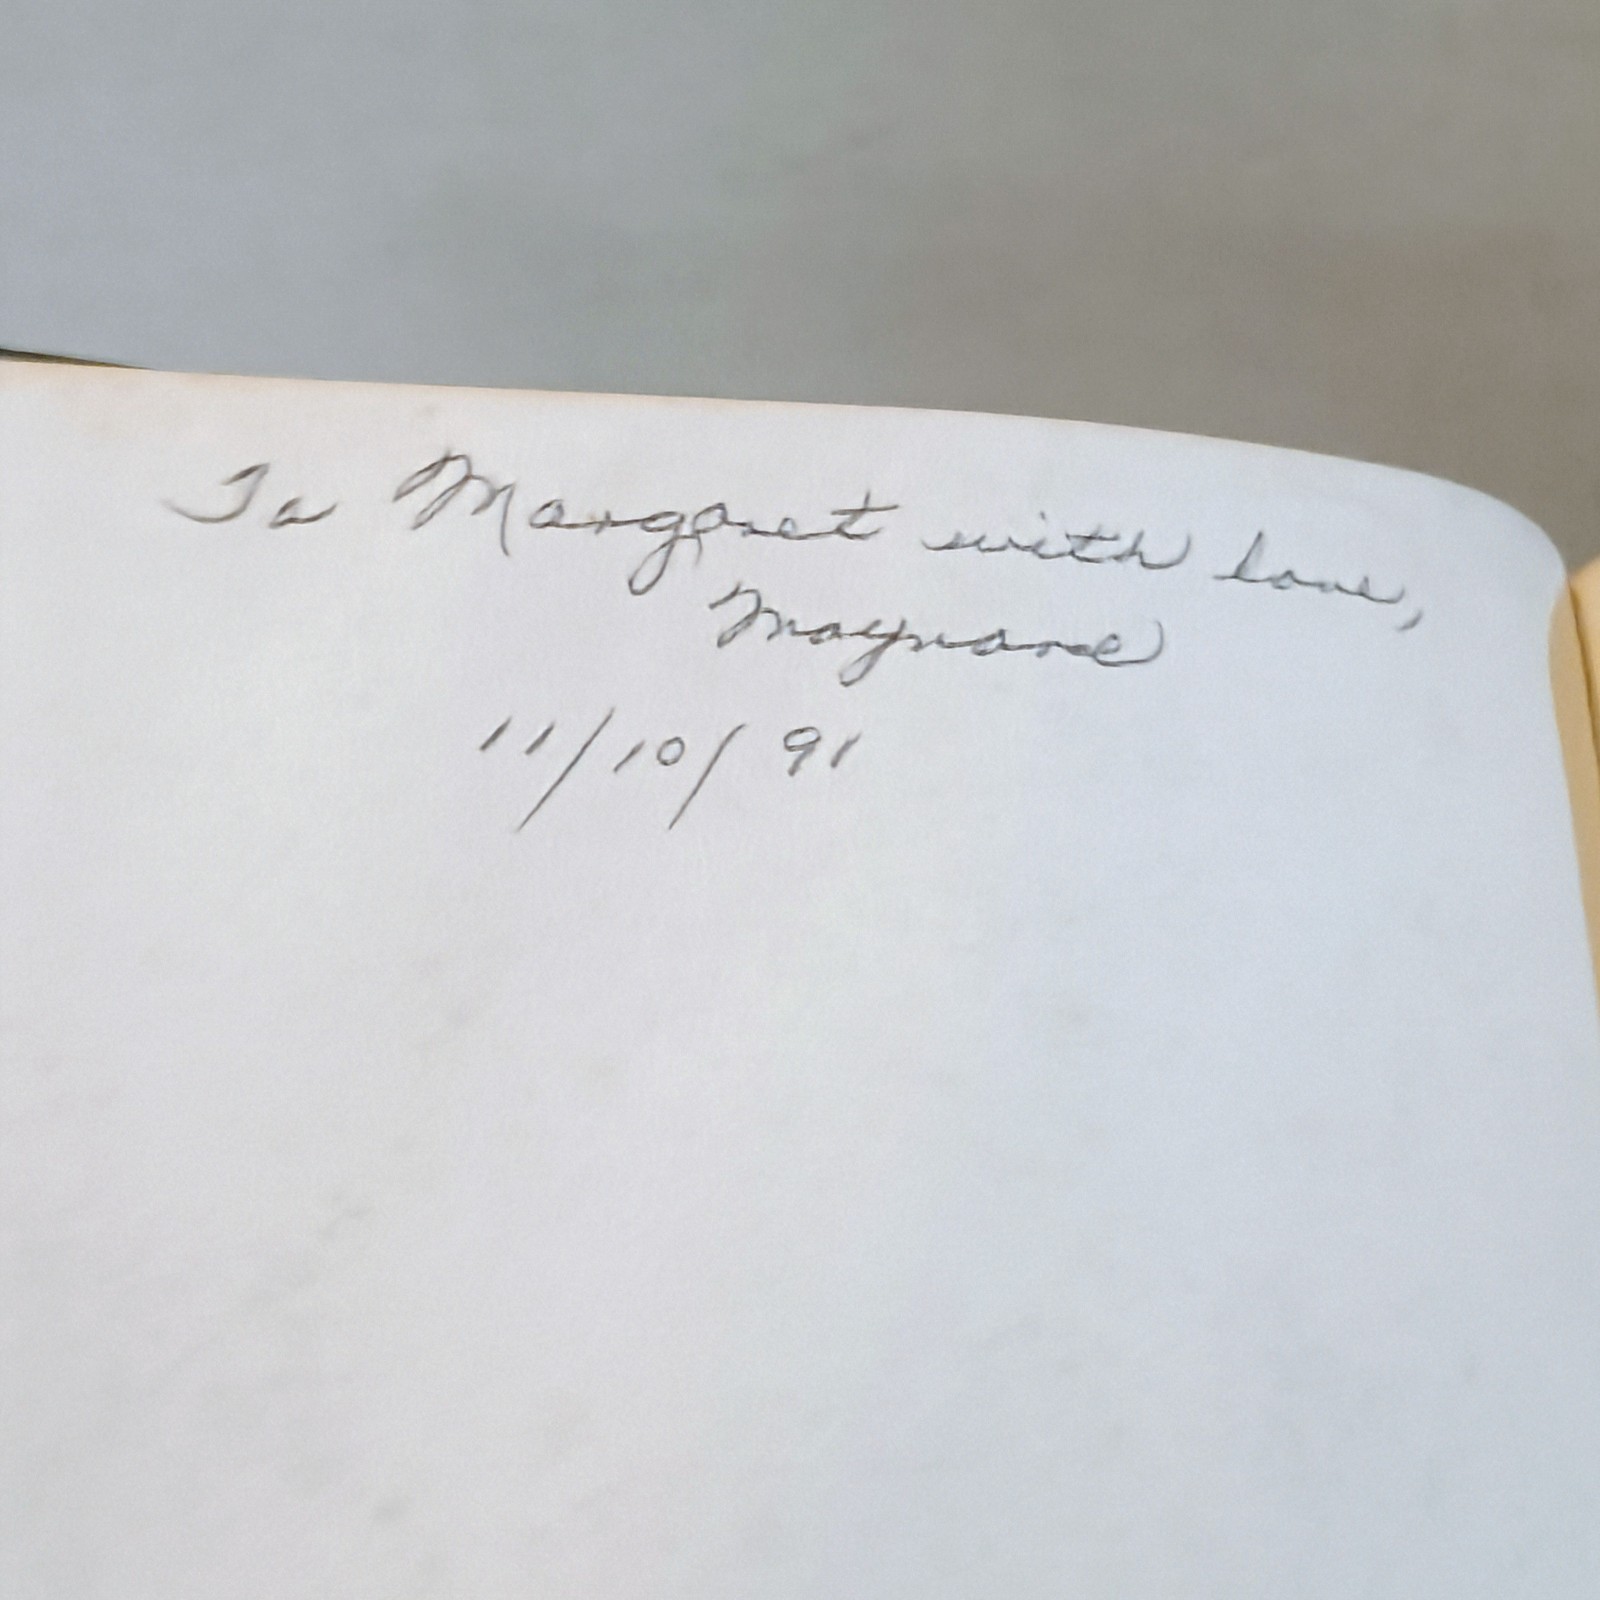 To Margaret with love,
Maynard
11/10/91